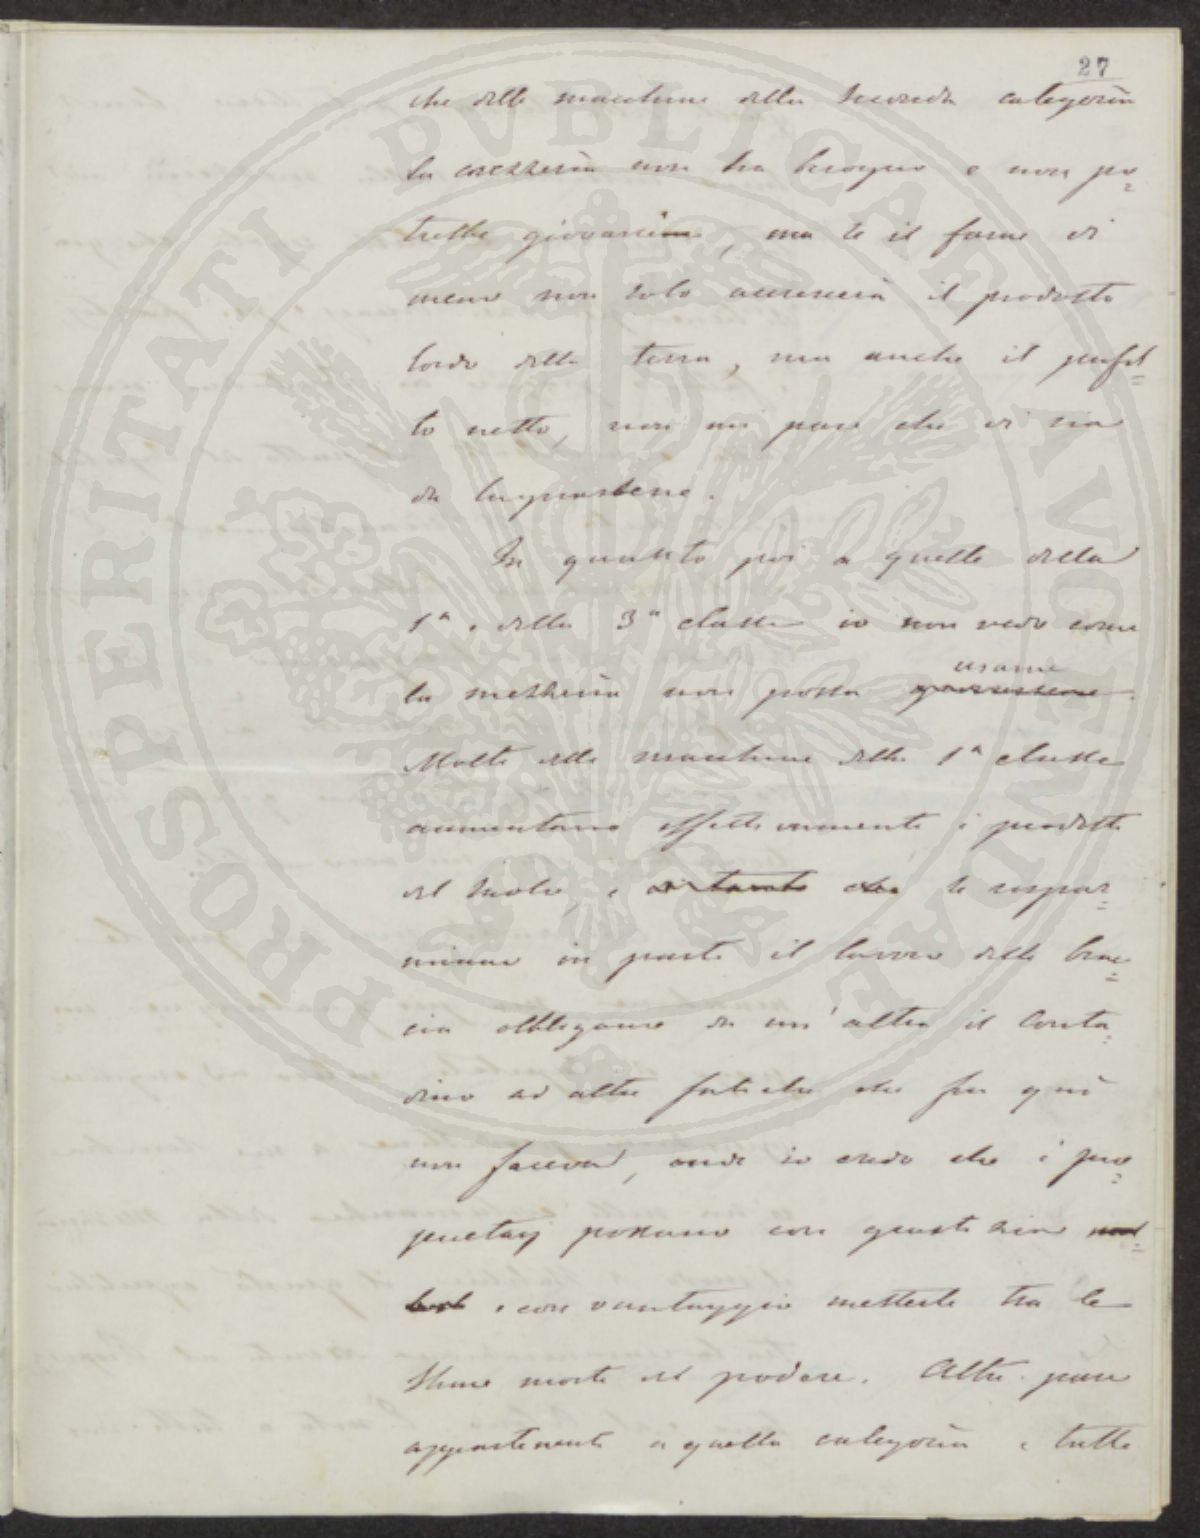 27
che delle macchine della seconda categoria
la mezzeria non ha bisogno e non po=
trebbe giovarsene, ma se il farne di
meno non solo accrescerà il prodotto
lordo della terra, ma anche il profit=
to netto, non mi pare che vi sia
da lagnarsene.
In quanto poi a quelle della
1ª e della 3ª classe io non vedo come
usarne
la mezzeria non possa
Molte delle macchine della 1ª classe
aumentano effettivamente i prodotti
del suolo, e se rispar=
miano in parte il lavoro delle brac=
cia obbligano da un'altra il conta=
dino ad altre fatiche che fin qui
non faceva, onde io credo che i pro=
prietarj possano con giustizia
e con vantaggio metterle tra le
stime morte del podere. Altre pure
appartenenti a quella categoria e tutte
PROSPERITATI PVBLICAE AVGENDAE